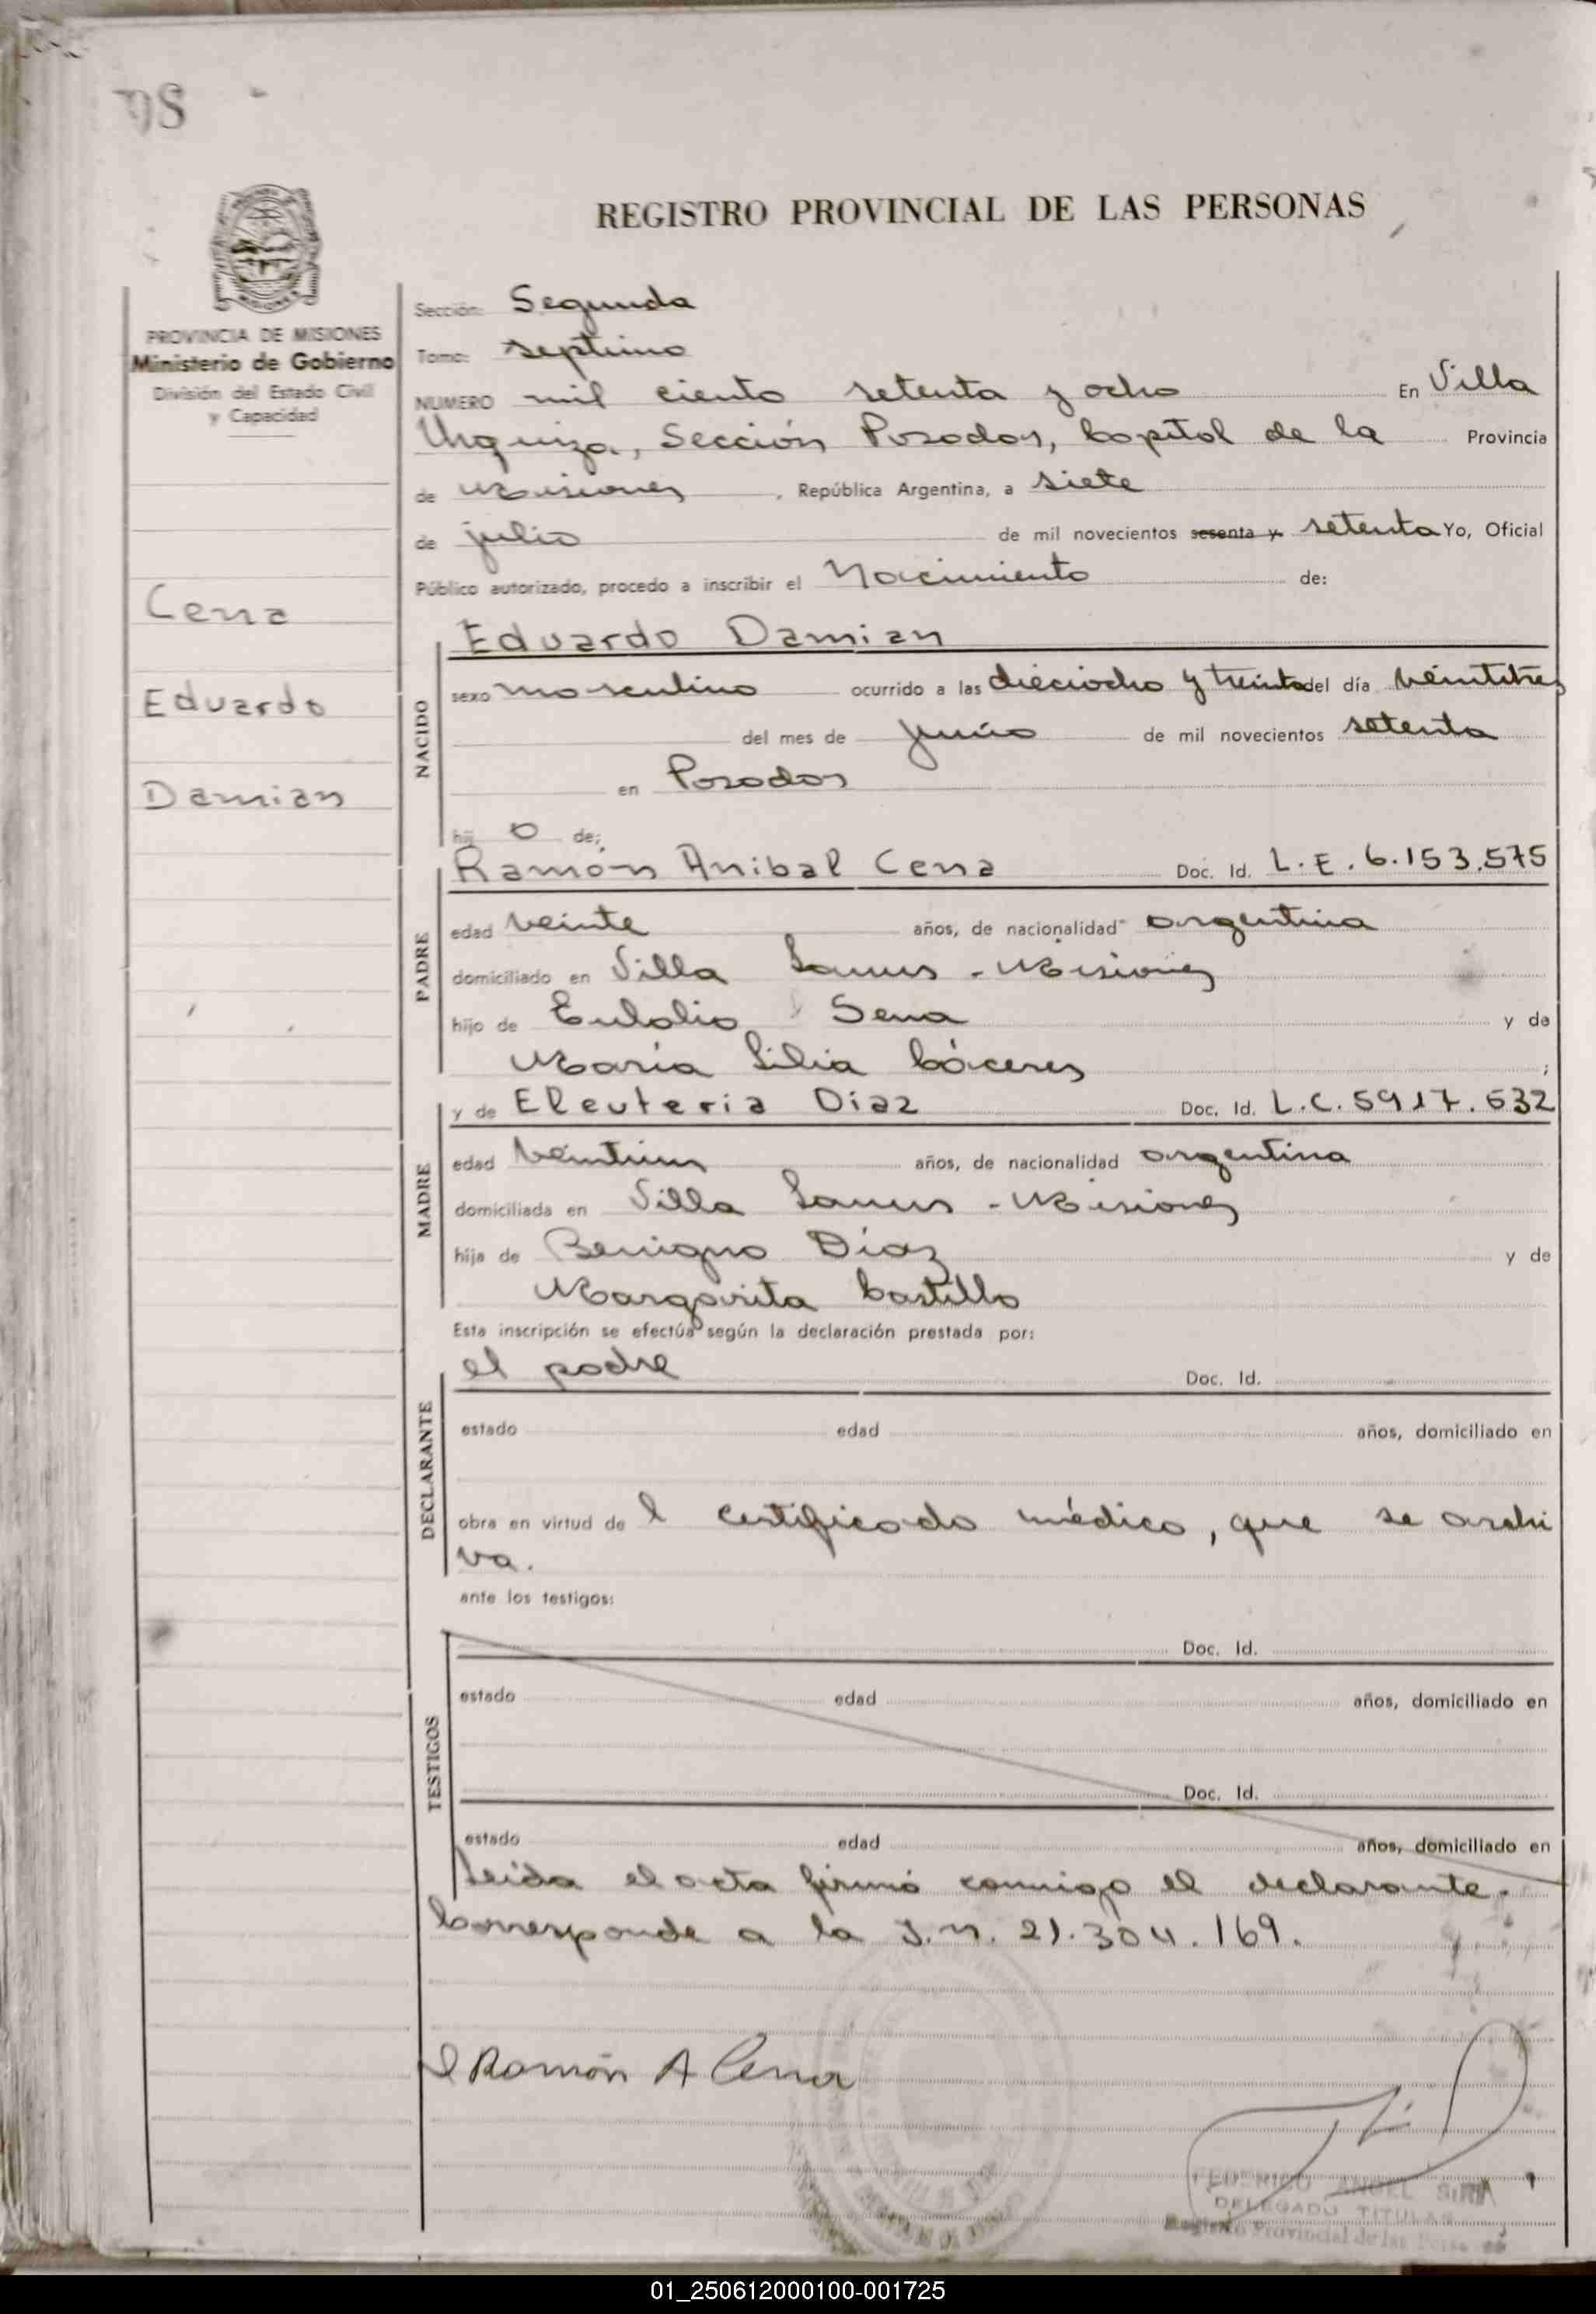 98
REGISTRO PROVINCIAL DE LAS PERSONAS
PROVINCIA DE MISIONES
Ministerio de Gobierno
División del Estado Civil
y Capacidad
Cena
Eduardo
Damian
Sección: Segunda
Tomo: septimo
NUMERO mil ciento setenta y ocho En Villa
Urquiza, Sección Posadas, Capital de la Provincia
de Misiones, República Argentina, a siete
de julio de mil novecientos sesenta y setenta Yo, Oficial
Público autorizado, procedo a inscribir el Nacimiento de:
NACIDO
Eduardo Damian
sexo masculino ocurrido a las dieciocho y treinta del día veintitres
del mes de junio de mil novecientos setenta
en Posadas
hij o de:
PADRE
Ramón Anibal Cena Doc. Id. L.E. 6.153.575
edad veinte años, de nacionalidad argentina
domiciliado en Villa Lanus - Misiones
hijo de Eulalio Sena y de
María Lilia Cáceres ;
MADRE
y de Eleuteria Diaz Doc. Id. L.C. 5917.632
edad veintiun años, de nacionalidad argentina
domiciliada en Villa Lanus - Misiones
hija de Benigno Díaz y de
Margarita Castillo
Esta inscripción se efectúa según la declaración prestada por:
DECLARANTE
el padre Doc. Id.
estado edad años, domiciliado en
obra en virtud de l certificado médico, que se archi
va.
ante los testigos:
TESTIGOS
Doc. Id.
estado edad años, domiciliado en
Doc. Id.
estado edad años, domiciliado en
Leida el acta firmó conmigo el declarante.
Corresponde a la I.N. 21.304.169.
Ramón A Cena
FEDERICO ANGEL
DELEGADO TITULAR
Registro Provincial de las
01_250612000100-001725